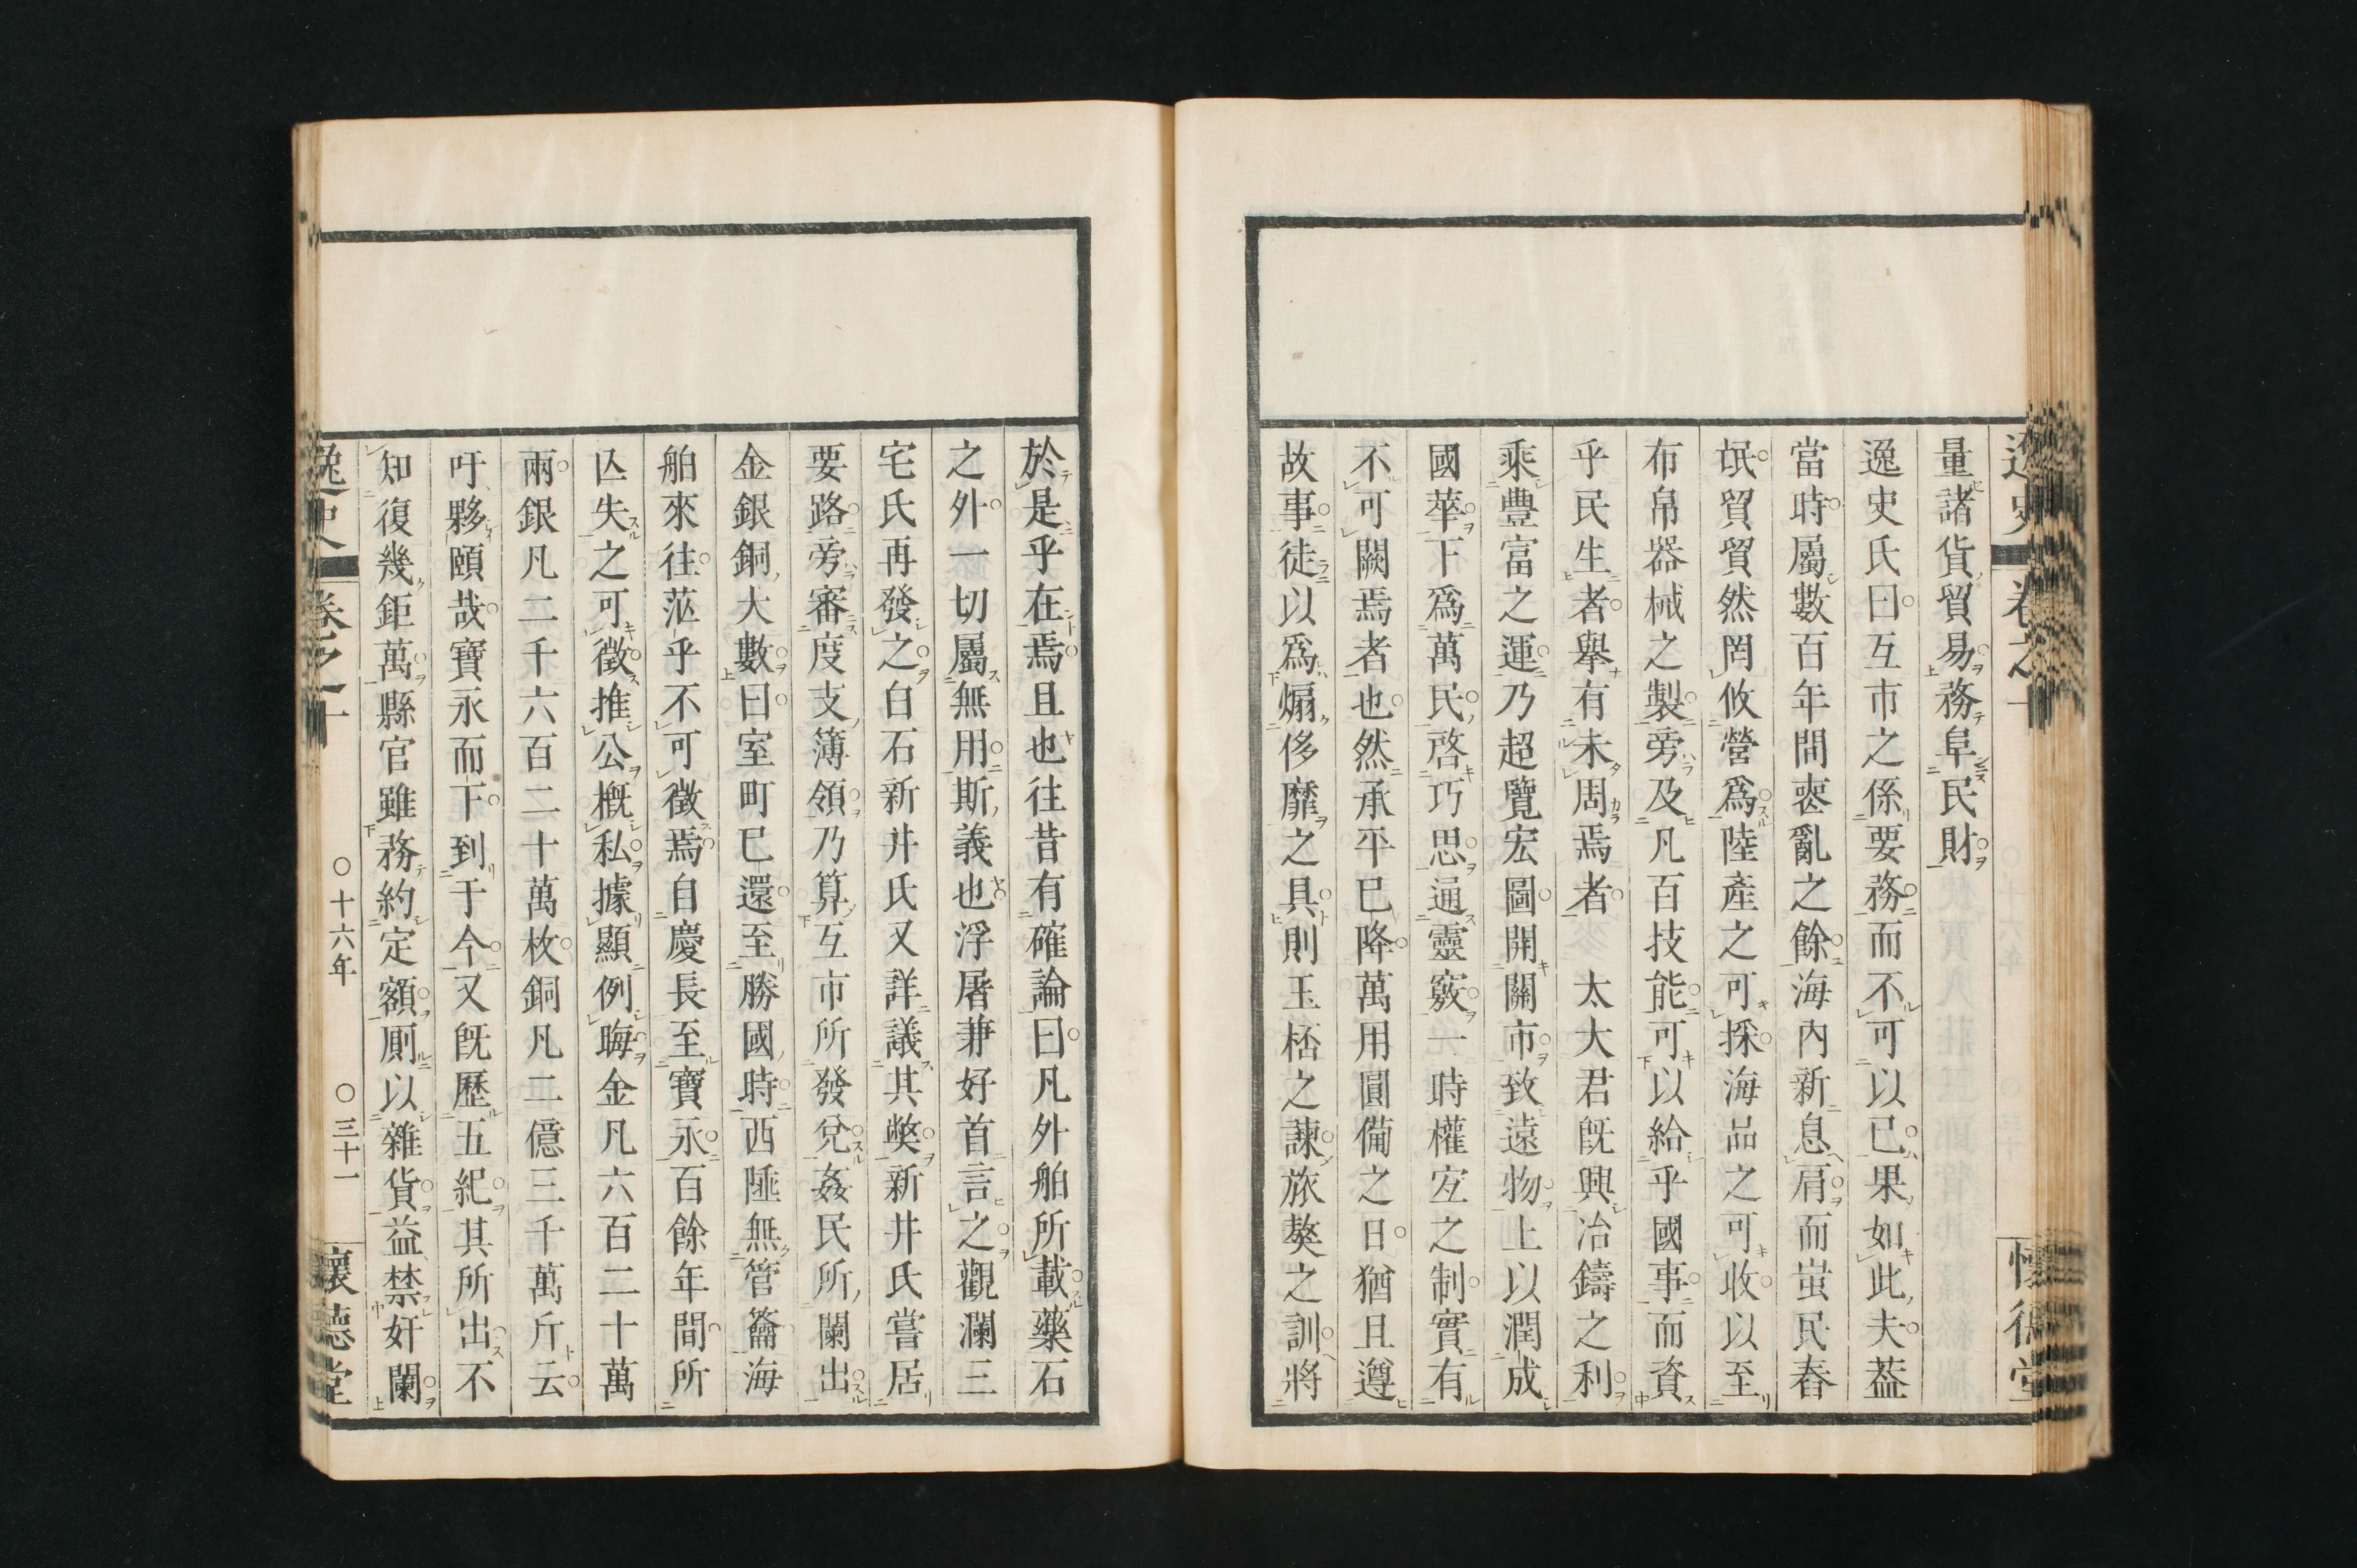 量諸貨貿易務阜民財
逸史氏曰互市之係要務而不可以已果如此夫葢
當時屬數百年間喪亂之餘海內新息肩而蚩民舂
氓貿貿然罔攸營爲陸產之可採海品之可收以至
布帛器械之製旁及凡百技能可以給乎國事而資
乎民生者舉有未周焉者　太大君旣興冶鑄之利
乘豐富之運乃超覽宏圖開關市致遠物上以潤成
國華下爲萬民啓巧思通靈竅一時權宐之制實有
不可闕焉者也然承平已降萬用圓備之日猶且遵
故事徒以爲煽侈靡之具則玉桮之諫旅獒之訓將
於是乎在焉且也往昔有確論曰凡外舶所載藥石
之外一切屬無用斯義也浮屠兼好首言之觀瀾三
宅氏再發之白石新井氏又詳議其獘新井氏嘗居
要路旁審度支簿領乃算互市所發兌姦民所闌出
金銀銅大數曰室町已還至勝國時西陲無管籥海
舶來往茫乎不可徵焉自慶長至寶永百餘年間所
亾失之可徵推公槪私據顯例晦金凡六百二十萬
兩銀凡二千六百二十萬枚銅凡二億三千萬斤云
吁夥頤哉寶永而下到于今又旣歷五紀其所出不
知復幾鉅萬縣官雖務約定額厠以雜貨益禁奸闌
逸史　卷之十　〇十六年　〇三十一　懷德堂